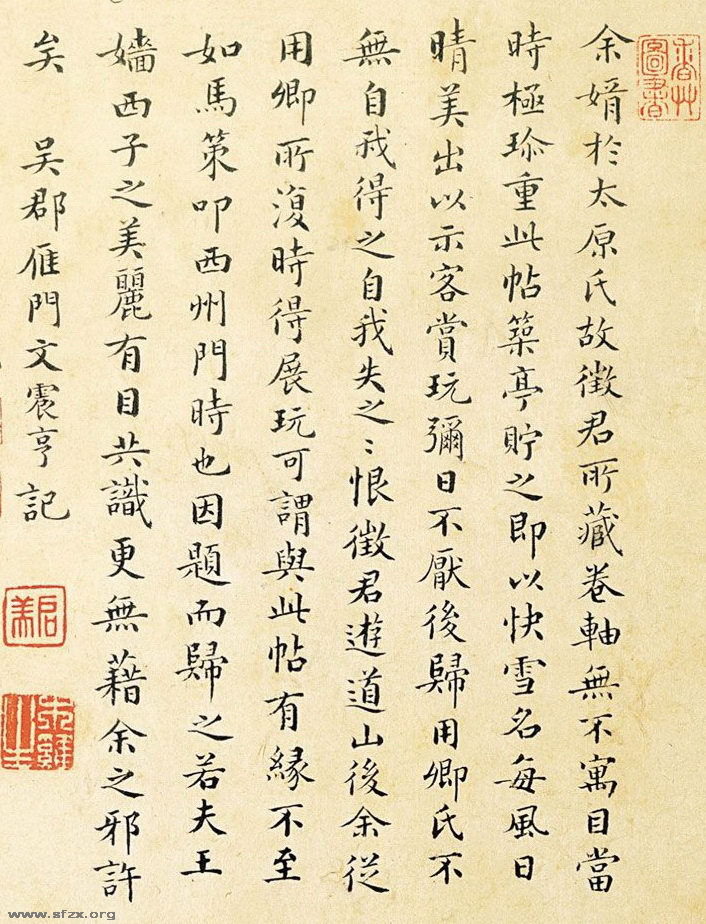 余婿於太原氏故徵君所藏卷軸無不寓目當
時極珎重此帖築亭貯之即以快雪名每風日
晴美出以示客賞玩彌日不厭後歸用卿氏不
無自我得之自我失之〻恨徵君遊道山後余從
用卿所復時得展玩可謂與此帖有緣不至
如馬策叩西州門時也因題而歸之若夫王
嬙西子之美麗有目共識更無藉余之邪許
矣 吳郡雁門文震亨記
www.sfzx.org